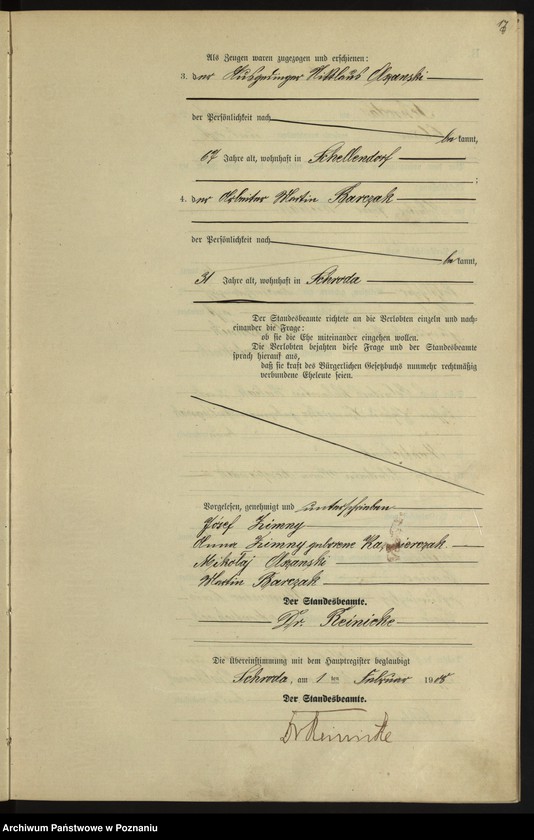 7
Als Zeugen waren zugezogen und erschienen:
3. der Ausgedinger Nikolaus Olszanski
der Persönlichkeit nach
be kannt,
67 Jahre alt, wohnhaft in Schellendorf
;
4. der Arbeiter Martin Barczak
der Persönlichkeit nach
be kannt,
31 Jahre alt, wohnhaft in Schroda
Der Standesbeamte richtete an die Verlobten einzeln und nach-
einander die Frage:
ob sie die Ehe miteinander eingehen wollen.
Die Verlobten bejahten diese Frage und der Standesbeamte
sprach hierauf aus,
daß sie kraft des Bürgerlichen Gesetzbuchs nunmehr rechtmäßig
verbundene Eheleute seien.
Vorgelesen, genehmigt und unterschrieben
Józef Zimny
Anna Zimny geborene Kazmierczak
Mikołaj Olszanski
Martin Barczak
Der Standesbeamte.
Dr. Reinicke
Die Übereinstimmung mit dem Hauptregister beglaubigt
Schroda, am 1 ten Februar 1905
Der Standesbeamte.
Dr Reinicke
Archiwum Państwowe w Poznaniu